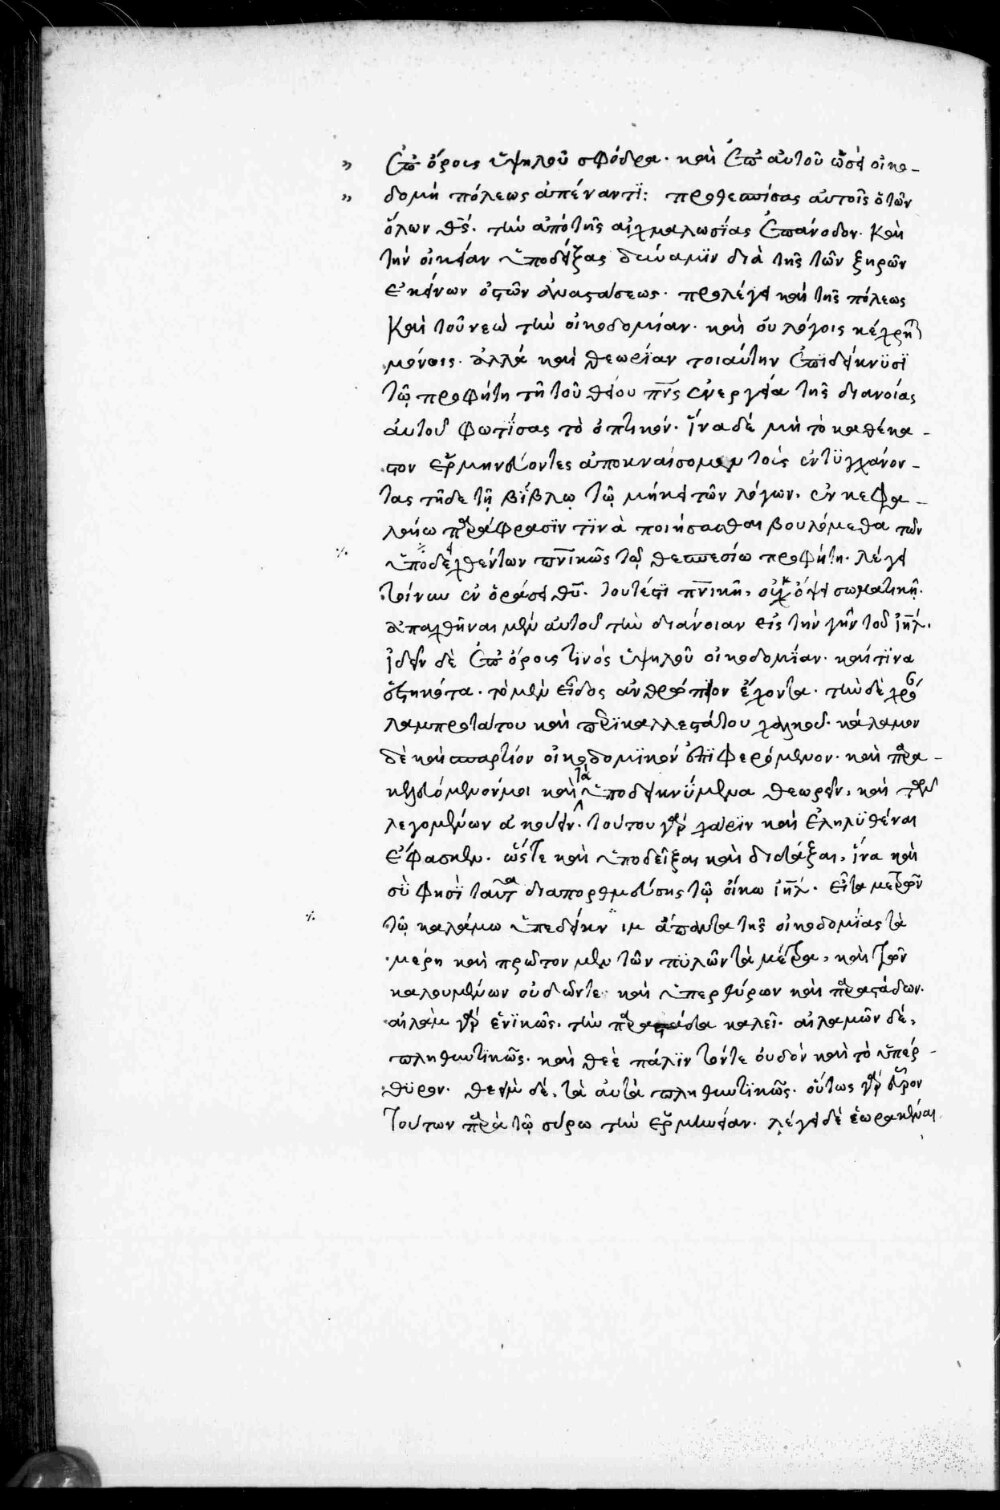 ἐπ' ὄρους ὑψηλοῦ σφόδρα· καὶ ἐπ' αὐτοῦ ὡσεὶ οἰκο-
δομὴ πόλεως ἀπέναντϊ: προθεσπίσας αὐτοῖς ὁ τῶν
ὅλων θς· τὴν ἀπὸ τῆς αἰχμαλωσίας ἐπάνοδον· καὶ
τὴν οἰκείαν ὑποδείξας δύναμϊν διὰ τῆς τῶν ξηρῶν
ἐκείνων ὀστῶν ἀναστάσεως· προλέγει καὶ τῆς πόλεως
καὶ τοῦ νεὼ τὴν οἰκοδομίαν· καὶ οὐ λόγοις κέχρηται
μόνοις· ἀλλὰ καὶ θεωρίαν τοιαύτην ἐπϊδείκνυσϊ
τῷ προφήτη τῆ τοῦ θείου πνς ἐνεργεία τῆς διανοίας
αὐτοῦ φωτΐσας τὸ ὀπτικόν· ἵνα δὲ μὴ τὸ καθέκα-
στον ἑρμηνεύοντες ἀποκναίσομεν τοὺς ἐντϋγχάνον-
τας τῆδε τῆ βΐβλῳ τῷ μήκει τῶν λόγων, ἐν κεφα-
λαίω παράφρασϊν τϊνὰ ποιήσασθαι βουλόμεθα τῶν
ὑποδειχθέντων πνικῶς τῷ θεσπεσίω προφήτη· λέγει
τοίνυν ἐν ὁράσει θυ· τουτέστι πνικῆ, οὐκ ὄψει σωματικῆ·
ἀπαχθῆναι μὲν αὐτοῦ τὴν διάνοιαν εἰς τὴν γῆν τοῦ ιηλ·
ἰδεῖν δὲ ἐπ' ὄρους τινὸς ὑψηλοῦ οἰκοδομΐαν· καὶ τϊνα
ἑστηκότα· τὸ μὲν εἶδος ἀνθρώπϊον ἔχοντα· τὴν δὲ χρό
λαμπροτάτου καὶ περϊκαλλεστάτου χαλκοῦ· κάλαμον
δὲ καὶ σπαρτίον οἰκοδομϊκόν ἐπϊφερόμενον· καὶ παρα-
κελευόμενόν μοι καὶ τὰ ὑποδεικνΰμενα θεωρεῖν, καὶ τῶν
λεγομένων ἀκούειν· τούτου γὰρ χάρϊν καὶ ἐληλϋθέναι
ἔφασκεν· ὥστε καὶ ὑποδεῖξαι καὶ διδάξαι, ἵνα καὶ
σὺ φησῒ ταῦτα διαπορθμεύσης τῷ οἴκω ιηλ· εἶτα μετρῶν
τῷ καλάμω ὑπεδείκνϋ μοι ἅπαντα τῆς οἰκοδομίας τὰ
μέρη καὶ πρῶτον μὲν τῶν πϋλῶν τὰ μέτρα, καὶ τῶν
καλουμένων οὐδῶν τε καὶ ὑπερθύρων καὶ παραστάδων·
αἰλὰμ γὰρ ἑνϊκῶς· τὴν παραστάδα καλεῖ· αἰλαμῶν δέ,
πληθυντϊκῶς· καὶ θεὲ πάλϊν τόν τε οὐδὸν καὶ τὸ ὑπέρ-
θϋρον· θεεὶμ δέ, τὰ αὐτὰ πληθυντϊκῶς· οὕτως γὰρ εὗρον
τούτων παρὰ τῷ σύρω τὴν ἑρμηνείαν· λέγει δὲ ἑωρακέναι